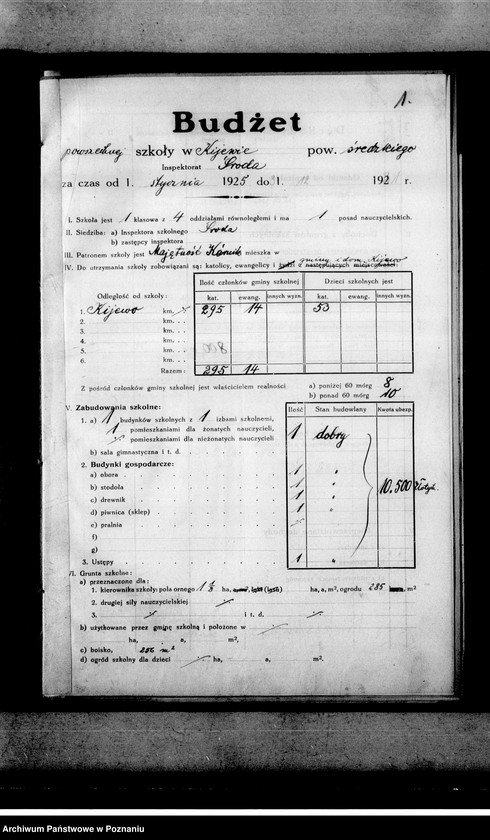 1.
Budżet
powszechnej szkoły w Kijewie pow. średzkiego
Inspektorat Środa
za czas od 1. stycznia 1925 do 1. 12 192 r.
I. Szkoła jest 1 klasowa z 4 oddziałami równoległemi i ma 1 posad nauczycielskich.
II. Siedziba: a) Inspektora szkolnego Środa
b) zastępcy inspektora
III. Patronem szkoły jest Majętność Kórnik mieszka w
IV. Do utrzymania szkoły zobowiązani są: katolicy, ewangelicy i żydzi z następujących miejscowości: gminy i dom. Kijewo
Ilość członków gminy szkolnej Dzieci szkolnych jest
Odległość od szkoły: kat. ewang. innych wyzn. kat. ewang. innych wyzn.
1. Kijewo km. 295 14 53
2. km.
3. km.
4. km.
5. km.
6. km.
Razem: 295 14
Z pośród członków gminy szkolnej jest właścicielem realności a) poniżej 60 mórg 8
b) ponad 60 mórg 10
V. Zabudowania szkolne: Ilość Stan budowlany Kwota ubezp.
1. a) 1 budynków szkolnych z 1 izbami szkolnemi, 1 dobry
1 pomieszkaniami dla żonatych nauczycieli,
pomieszkaniami dla nieżonatych nauczycieli
b) sala gimnastyczna i t. d.
2. Budynki gospodarcze:
a) obora 1 "
b) stodoła 1 " 10.500 złotych
c) drewnik 1 "
d) piwnica (sklep) 1 "
e) pralnia
f)
g)
3. Ustępy 1 "
VI. Grunta szkolne:
a) przeznaczone dla:
1. kierownika szkoły: pola ornego ha, ha, a, m², ogrodu 285 m²
2. drugiej siły nauczycielskiej
3. i t. d.
b) użytkowane przez gminę szkolną i położone w
ha, a, m².
c) boisko, 256 m²
d) ogród szkolny dla dzieci ha, a, m².
Archiwum Państwowe w Poznaniu